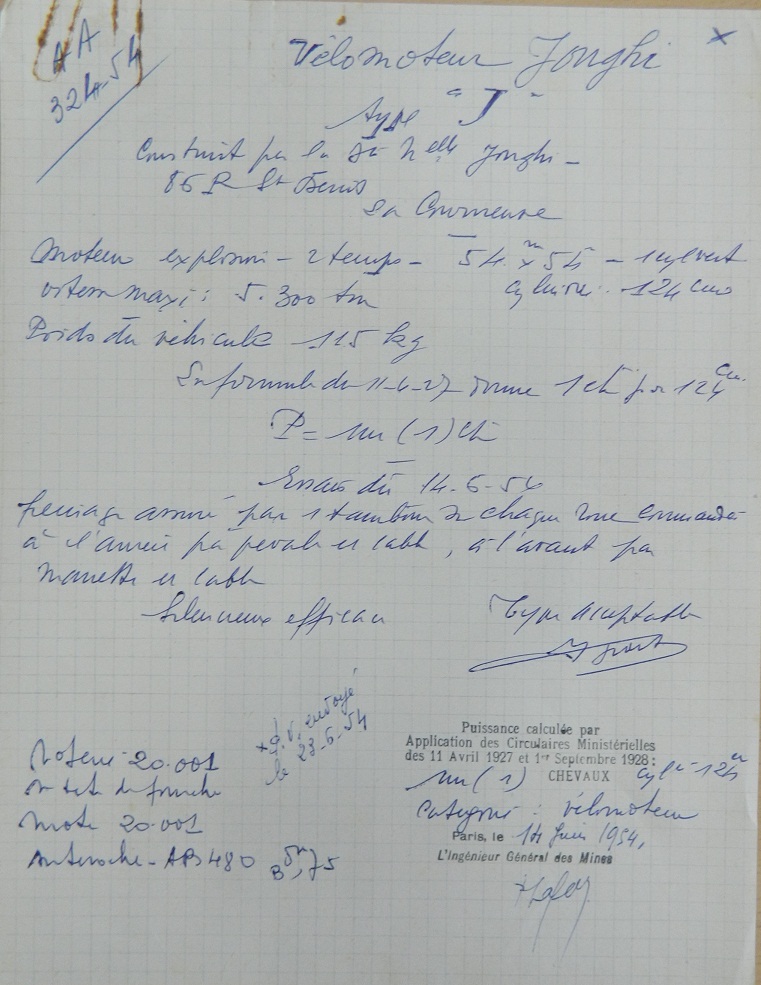 AA
324-54
Vélomoteur Jonghi
type "J"
Construit par la Sté Nelle Jonghi -
86 R St Denis
La Courneuve
Moteur explosion - 2 temps - 54 x 54 - 1 cyl vert
vitesse maxi : 5.300 tm cylindrée : 124 cm3
Poids du véhicule 115 kg
La formule du 11-4-27 donne 1 ch pr 124
P = un (1) ch
Essais du 14-6-54
freinage assuré par 1 tambour sur chaque roue commandé
à l'arrière par pédale et cable, à l'avant par
manette et cable
Silencieux efficace
Type acceptable
P.V. envoyé
le 23-6-54
Puissance calculée par
Application des Circulaires Ministérielles
des 11 Avril 1927 et 1er Septembre 1928 :
un (1) CHEVAUX cyl 124
Catégorie : vélomoteur
Paris, le 14 Juin 1954,
L'Ingénieur Général des Mines
20.001
tete de fourche
Mote 20.001
Anteroche - AB 480 B 75